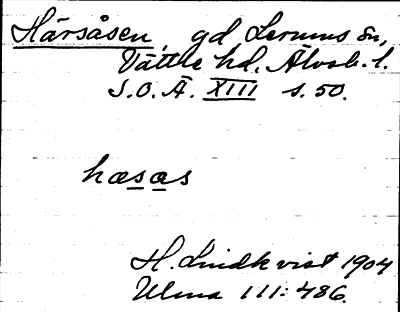 Härsåsen, gd Lerums sn,
Vättle hd. Älvsb. l.
S.O.Ä. XIII s. 50.
hasas
H. Lindkvist 1904
Ulma 111:486.